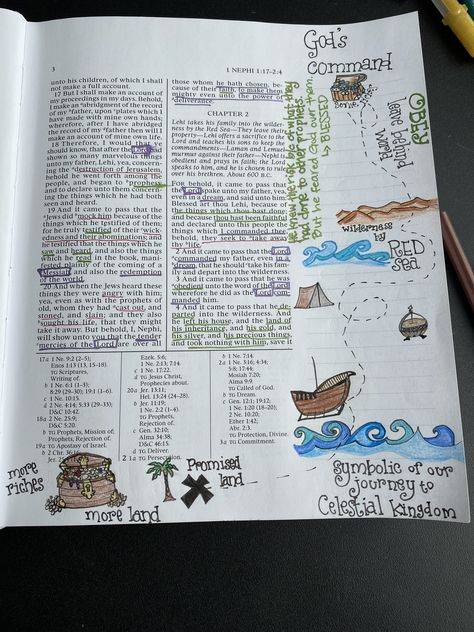 3
1 NEPHI 1:17–2:4
unto his children, of which I shall
not make a full account.
17 But I shall make an account of
my proceedings in my days. Behold,
I make an abridgment of the record
of my father, upon plates which I
have made with mine own hands;
wherefore, after I have abridged
the record of my father then will I
make an account of mine own life.
18 Therefore, I would that ye
should know, that after the Lord had
shown so many marvelous things
unto my father, Lehi, yea, concern-
ing the destruction of Jerusalem,
behold he went forth among the
people, and began to prophesy
and to declare unto them concern-
ing the things which he had both
seen and heard.
19 And it came to pass that the
Jews did mock him because of the
things which he testified of them;
for he truly testified of their wick-
edness and their abominations; and
he testified that the things which he
saw and heard, and also the things
which he read in the book, mani-
fested plainly of the coming of a
Messiah, and also the redemption
of the world.
20 And when the Jews heard these
things they were angry with him;
yea, even as with the prophets of
old, whom they had cast out, and
stoned, and slain; and they also
sought his life, that they might
take it away. But behold, I, Nephi,
will show unto you that the tender
mercies of the Lord are over all
those whom he hath chosen, be-
cause of their faith, to make them
mighty even unto the power of
deliverance.
CHAPTER 2
Lehi takes his family into the wilder-
ness by the Red Sea—They leave their
property—Lehi offers a sacrifice to the
Lord and teaches his sons to keep the
commandments—Laman and Lemuel
murmur against their father—Nephi is
obedient and prays in faith; the Lord
speaks to him, and he is chosen to rule
over his brethren. About 600 B.C.
For behold, it came to pass that
the Lord spake unto my father, yea,
even in a dream, and said unto him:
Blessed art thou Lehi, because of
the things which thou hast done;
and because thou hast been faithful
and declared unto this people the
things which I commanded thee,
behold, they seek to take away
thy life.
2 And it came to pass that the Lord
commanded my father, even in a
dream, that he should take his fam-
ily and depart into the wilderness.
3 And it came to pass that he was
obedient unto the word of the Lord,
wherefore he did as the Lord com-
manded him.
4 And it came to pass that he de-
parted into the wilderness. And
he left his house, and the land of
his inheritance, and his gold, and
his silver, and his precious things,
and took nothing with him, save it
17a 1 Ne. 9:2 (2–5);
Enos 1:13 (13, 15–18).
TG Scriptures,
Writing of.
b 1 Ne. 6:1 (1–3);
8:29 (29–30); 19:1 (1–6).
c 1 Ne. 10:15.
d 2 Ne. 4:14; 5:33 (29–33);
D&C 10:42.
18a 2 Ne. 25:9;
D&C 5:20.
b TG Prophets, Mission of;
Prophets, Rejection of.
19a TG Apostasy of Israel.
b 2 Chr. 36:16;
Jer. 2
Ezek. 5:6;
1 Ne. 2:13; 7:14.
c 1 Ne. 17:22.
d TG Jesus Christ,
Prophecies about.
20a Jer. 13:11;
Hel. 13:24 (24–28).
b Jer. 11:19;
1 Ne. 2:2 (1–4).
TG Prophets,
Rejection of.
c Gen. 32:10;
Alma 34:38;
D&C 46:15.
d TG Deliver.
2 1a TG Persecution.
b 1 Ne. 7:14.
2a 1 Ne. 3:16; 4:34;
5:8; 17:44;
Mosiah 7:20;
Alma 9:9.
TG Called of God.
b TG Dream.
c Gen. 12:1; 19:12;
1 Ne. 1:20 (18–20);
2 Ne. 10:20;
Ether 1:42;
Abr. 2:3.
TG Protection, Divine.
3a TG Commandment.
God's
command
OBEY
wilderness
by
RED
Sea
more
riches
more land
Promised
land
Symbolic of our
journey to
Celestial Kingdom